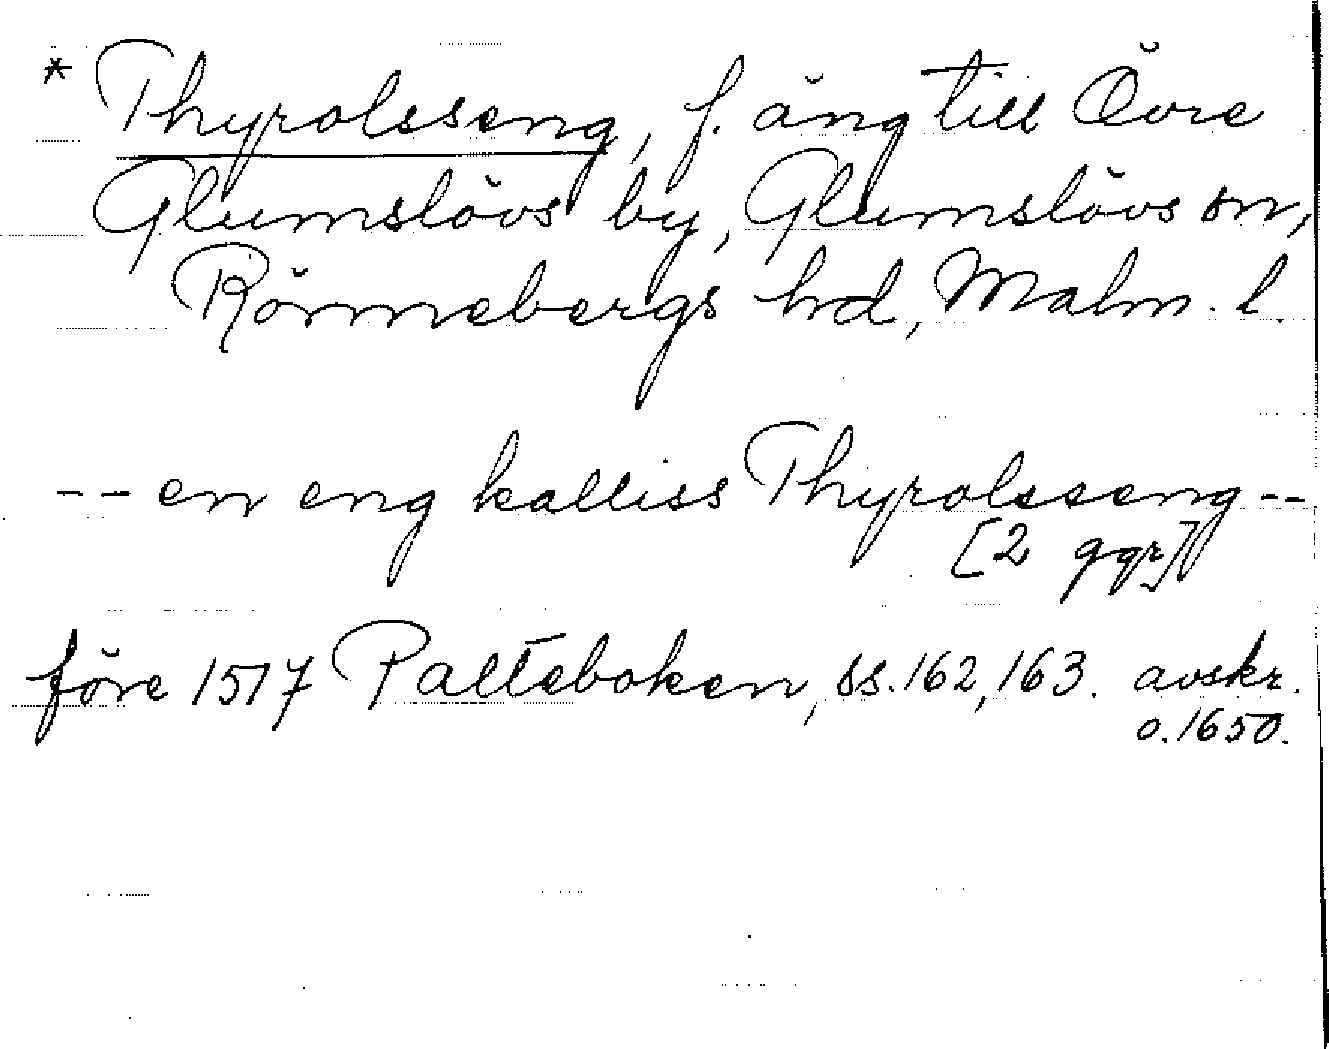 * Thyrolsseng, f. äng till Övre
Glumslövs by, Glumslövs sn,
Rönnebergs hd, Malm. l.
-- en eng kalliss Thyrolsseng --
[2 ggr]
före 1517 Palteboken, ss. 162, 163. avskr.
o. 1650.